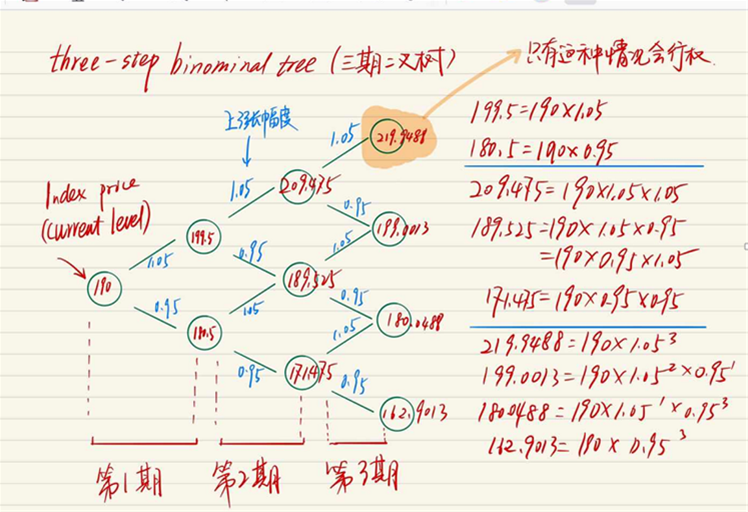 three-step binominal tree (三期二叉树)
只有这种情况会行权.
上涨幅度
Index price
(current level)
190
1.05
0.95
199.5
180.5
1.05
0.95
1.05
0.95
209.475
189.525
171.475
1.05
0.95
1.05
0.95
1.05
0.95
219.9488
199.0013
180.0488
162.9013
第1期
第2期
第3期
199.5=190×1.05
180.5=190×0.95
209.475=190×1.05×1.05
189.525=190×1.05×0.95
=190×0.95×1.05
171.475=190×0.95×0.95
219.9488=190×1.05³
199.0013=190×1.05²×0.95¹
180.0488=190×1.05¹×0.95³
162.9013=180×0.95³